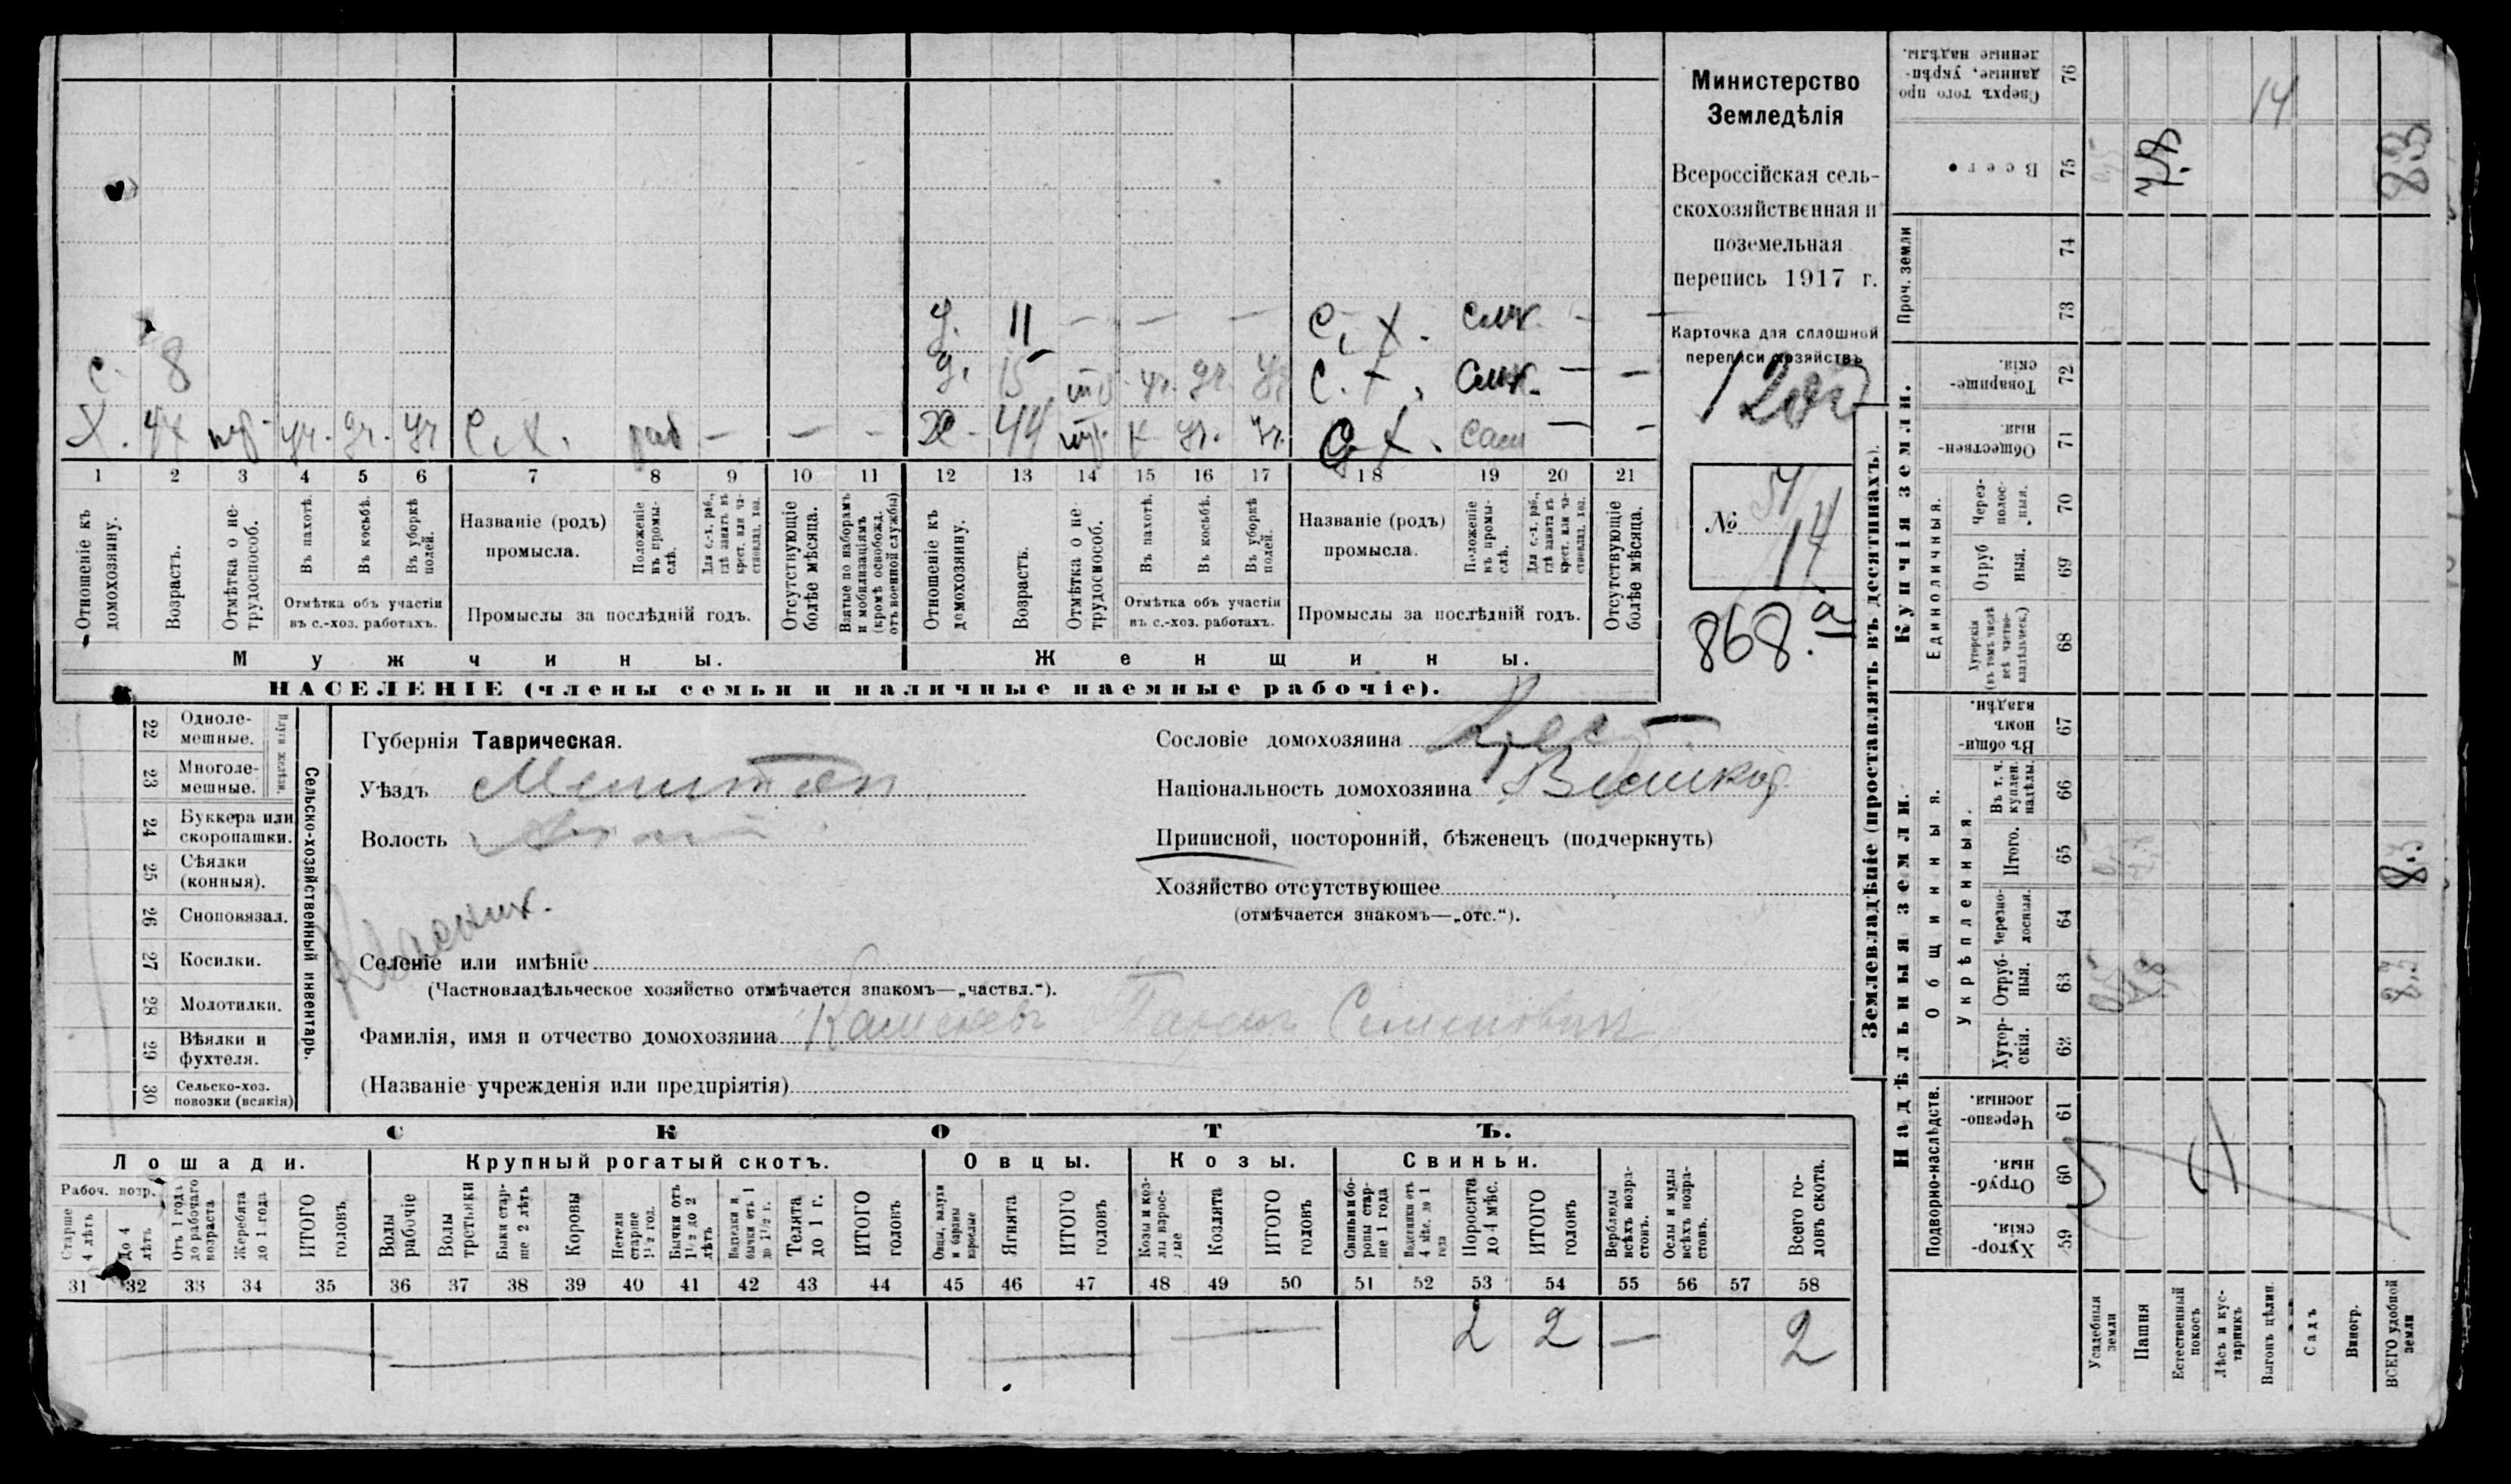 Министерство
Земледѣлія
Всероссійская сель-
скохозяйственная и
поземельная
перепись 1917 г.
Карточка для сплошной
переписи хозяйствъ
№ 14
868.a
У. 11 — — — С. Х. — —
С. 8
15 уч. уч. С. Х. — —
Х. уч. уч. уч. С. Х. раб — — —
Ж. 44 К уч. уч. С. Х. сам — —
1 2 3 4 5 6 7 8 9 10 11 12 13 14 15 16 17 18 19 20 21
Отношеніе къ домохозяину.
Возрастъ.
Отмѣтка о не-трудоспособ.
Въ пахотѣ.
Въ косьбѣ.
Въ уборкѣ полей.
Отмѣтка объ участіи
въ с.-хоз. работахъ.
Названіе (родъ)
промысла.
Положеніе въ промы-слѣ.
Для с.-х. раб., гдѣ занятъ въ крест. или ча-стновлад. хоз.
Промыслы за послѣдній годъ.
Отсутствующіе болѣе мѣсяца.
Взятые по наборамъ и мобилизаціямъ (кромѣ освобожд. отъ военной службы)
Отношеніе къ домохозяину.
Возрастъ.
Отмѣтка о не-трудоспособ.
Въ пахотѣ.
Въ косьбѣ.
Въ уборкѣ полей.
Отмѣтка объ участіи
въ с.-хоз. работахъ.
Названіе (родъ)
промысла.
Положеніе въ промы-слѣ.
Для с.-х. раб., гдѣ занята въ крест. или ча-стновлад. хоз.
Промыслы за послѣдній годъ.
Отсутствующіе болѣе мѣсяца.
Мужчины.
Женщины.
НАСЕЛЕНІЕ (члены семьи и наличные наемные рабочіе).
Сельско-хозяйственный инвентарь.
Плуги желѣзн.
22 Одноле-мешные.
23 Многоле-мешные.
24 Буккера или скоропашки.
25 Сѣялки (конныя).
26 Сноповязал.
27 Косилки.
28 Молотилки.
29 Вѣялки и фухтеля.
30 Сельско-хоз. повозки (всякія)
Губернія Таврическая.
Уѣздъ
Волость
Селеніе или имѣніе
(Частновладѣльческое хозяйство отмѣчается знакомъ—„частвл.“).
Фамилія, имя и отчество домохозяина Семеновичъ
(Названіе учрежденія или предпріятія)
Сословіе домохозяина Крес
Національность домохозяина Великор.
Приписной, посторонній, бѣженецъ (подчеркнуть)
Хозяйство отсутствующее
(отмѣчается знакомъ—„отс.“).
СКОТЪ.
Лошади.
Крупный рогатый скотъ.
Овцы.
Козы.
Свиньи.
Рабоч. возр.
Старше 4 лѣтъ
До 4 лѣтъ
Отъ 1 года до рабочаго возраста
Жеребята до 1 года
ИТОГО головъ
Волы рабочіе
Волы третьяки
Быки стар-ше 2 лѣтъ
Коровы
Нетели старше 1½ год.
Бычки отъ 1½ до 2 лѣтъ
Телки и бычки отъ 1 до 1½ г.
Телята до 1 г.
ИТОГО головъ
Овцы, валухи и бараны взрослые
Ягнята
ИТОГО головъ
Козы и коз-лы взрос-лые
Козлята
ИТОГО головъ
Свиньи и бо-ровы стар-ше 1 года
Подсвинки отъ 4 мѣс. до 1 года
Поросята до 4 мѣс.
ИТОГО головъ
Верблюды всѣхъ возра-стовъ.
Ослы и мулы всѣхъ возра-стовъ.
Всего го-ловъ скота.
31 32 33 34 35 36 37 38 39 40 41 42 43 44 45 46 47 48 49 50 51 52 53 54 55 56 57 58
2 2 — 2
Землевладѣніе (проставлять въ десятинахъ).
Надѣльныя земли.
Подворно-наслѣдств.
Хутор-скія. 59
Отруб-ныя. 60
Черезпо-лосныя. 61
Общинныя.
Укрѣпленныя.
Хутор-скія. 62
Отруб-ныя. 63 8,3
Черезпо-лосныя. 64
Итого. 65 8,3
Въ т. ч. куплен. надѣлы. 66
Въ общи-номъ владѣн. 67
Купчія земли.
Единоличныя.
Хуторскія (въ томъ числѣ всѣ частно-владѣльческ.) 68
Отруб ныя. 69
Через-полос-ныя. 70
Обществен-ныя. 71
Товарище-скія. 72
Проч. земли
73
74
Всего. 75 7,8 83
Сверхъ того про даяныя, укрѣп-ленныя надѣлы. 76 14
Усадебныя земли
Пашня
Естественный покосъ
Лѣсъ и кус-тарникъ
Выгонъ цѣлин.
Садъ
Виногр.
ВСЕГО удобной земли